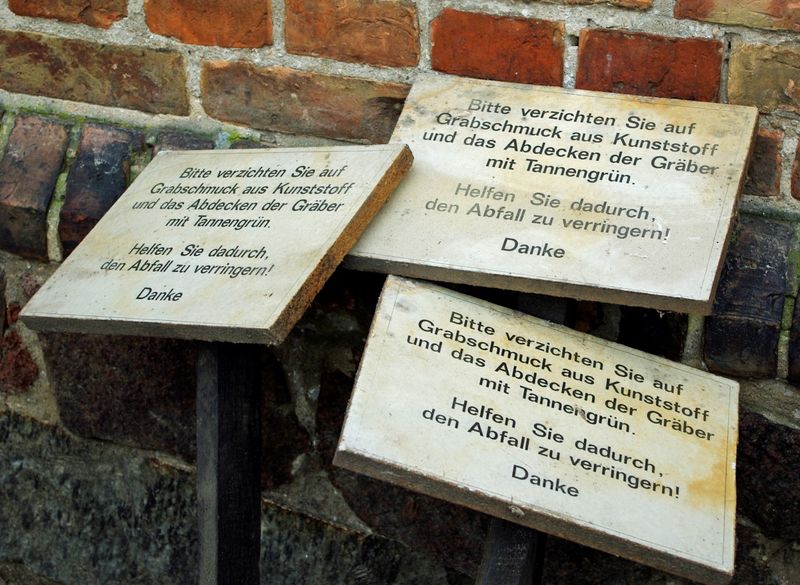 Bitte verzichten Sie auf
Grabschmuck aus Kunststoff
und das Abdecken der Gräber
mit Tannengrün.
Helfen Sie dadurch,
den Abfall zu verringern!
Danke
Bitte verzichten Sie auf
Grabschmuck aus Kunststoff
und das Abdecken der Gräber
mit Tannengrün.
Helfen Sie dadurch,
den Abfall zu verringern!
Danke
Bitte verzichten Sie auf
Grabschmuck aus Kunststoff
und das Abdecken der Gräber
mit Tannengrün.
Helfen Sie dadurch,
den Abfall zu verringern!
Danke